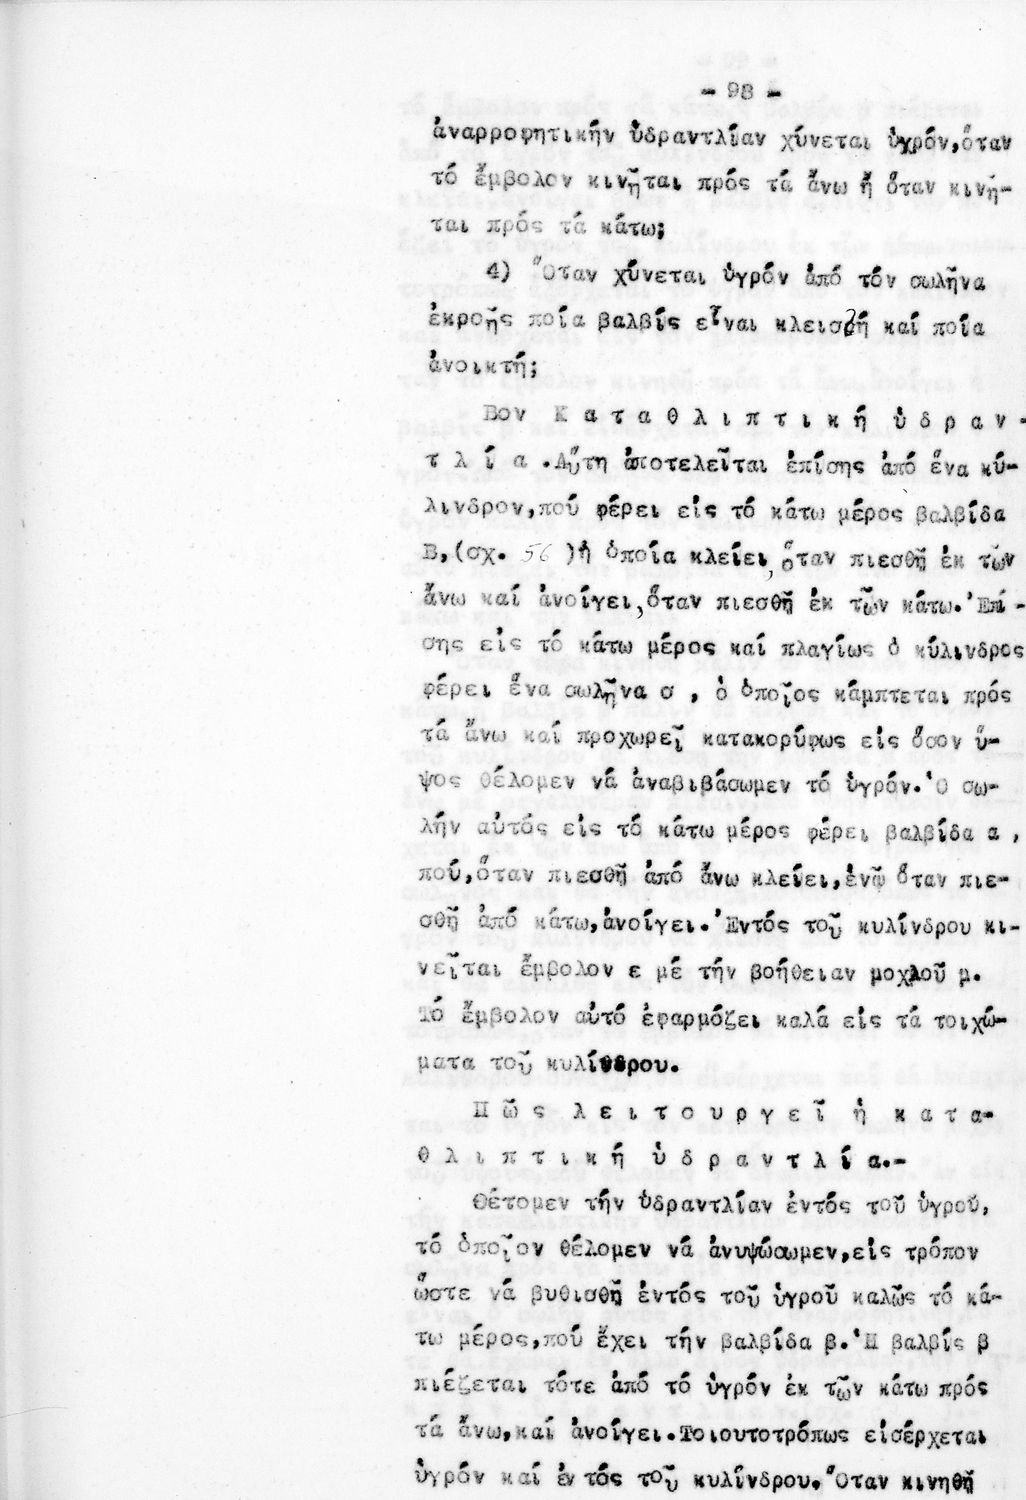 - 98 -
ἀναρροφητικήν ὑδραντλίαν χύνεται ὑγρόν,ὅταν
τό ἔμβολον κινῆται πρός τά ἄνω ἤ ὅταν κινῆ-
ται πρός τά κάτω;
4) Ὅταν χύνεται ὑγρόν ἀπό τόν σωλῆνα
ἐκροῆς ποία βαλβίς εἶναι κλειστή καί ποία
ἀνοικτή;
Βον Κ α τ α θ λ ι π τ ι κ ή ὑ δ ρ α ν -
τ λ ί α .Αὕτη ἀποτελεῖται ἐπίσης ἀπό ἕνα κύ-
λινδρον,πού φέρει εἰς τό κάτω μέρος βαλβίδα
Β,(σχ. 56 )ἡ ὁποία κλείει,ὅταν πιεσθῇ ἐκ τῶν
ἄνω καί ἀνοίγει,ὅταν πιεσθῇ ἐκ τῶν κάτω.Ἐπί-
σης εἰς τό κάτω μέρος καί πλαγίως ὁ κύλινδρος
φέρει ἕνα σωλῆνα σ , ὁ ὁποῖος κάμπτεται πρός
τά ἄνω καί προχωρεῖ κατακορύφως εἰς ὅσον ὕ-
ψος θέλομεν νά ἀναβιβάσωμεν τό ὑγρόν.Ὁ σω-
λήν αὐτός εἰς τό κάτω μέρος φέρει βαλβίδα α ,
πού,ὅταν πιεσθῇ ἀπό ἄνω κλείει,ἐνῷ ὅταν πιε-
σθῇ ἀπό κάτω,ἀνοίγει.Ἐντός τοῦ κυλίνδρου κι-
νεῖται ἔμβολον ε μέ τήν βοήθειαν μοχλοῦ μ.
Τό ἔμβολον αὐτό ἐφαρμόζει καλά εἰς τά τοιχώ-
ματα τοῦ κυλίνδρου.
Π ῶ ς λ ε ι τ ο υ ρ γ ε ῖ ἡ κ α τ α-
θ λ ι π τ ι κ ή ὑ δ ρ α ν τ λ ί α.-
Θέτομεν τήν ὑδραντλίαν ἐντός τοῦ ὑγροῦ,
τό ὁποῖον θέλομεν νά ἀνυψώσωμεν,εἰς τρόπον
ὥστε νά βυθισθῇ ἐντός τοῦ ὑγροῦ καλῶς τό κά-
τω μέρος,πού ἔχει τήν βαλβίδα β.Ἡ βαλβίς β
πιέζεται τότε ἀπό τό ὑγρόν ἐκ τῶν κάτω πρός
τά ἄνω,καί ἀνοίγει.Τοιουτοτρόπως εἰσέρχεται
ὑγρόν καί ἐντός τοῦ κυλίνδρου.Ὅταν κινηθῇ